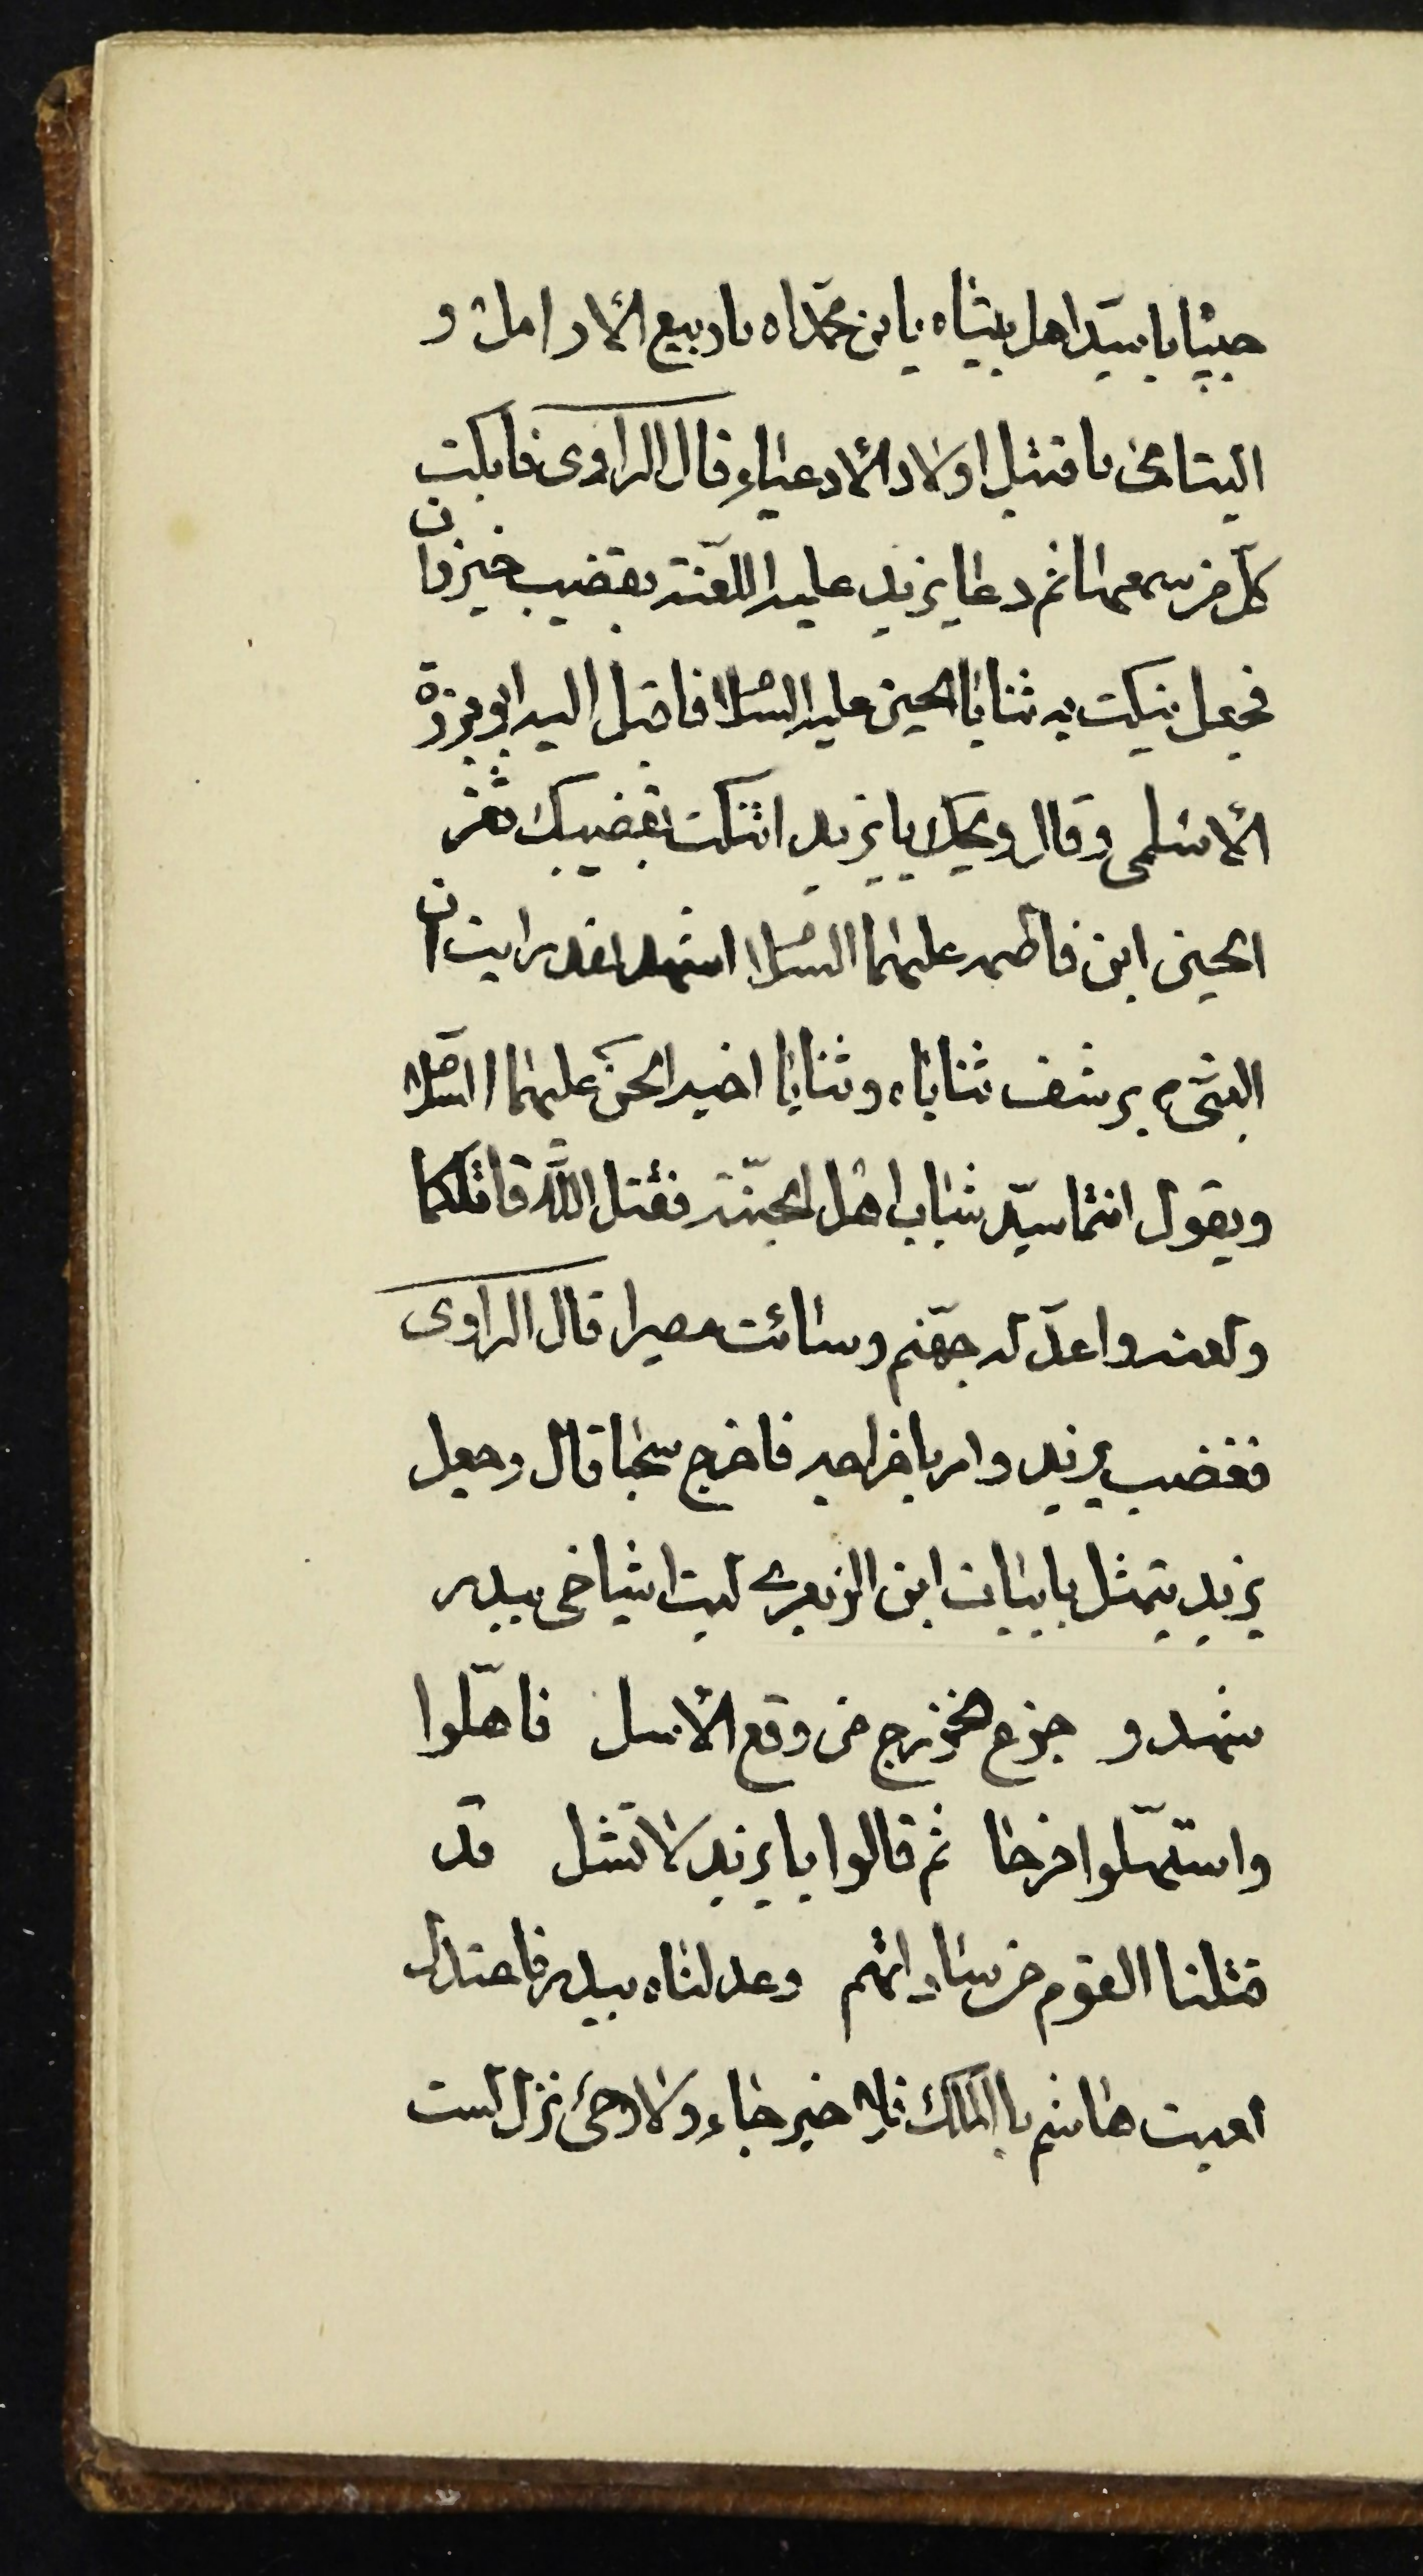 حبيباه يا سيّد اهل بيتاه يا بن محمّداه يا ربيع الأرامل و
اليتامى يا قتيل اولاد الأدعياء قال الراوى فابكت
كلّ من سمعها ثم دعا يزيد عليه اللعنة بقضيب خيزران
فجعل ينكت به ثنايا الحسين عليه السلام فاقبل اليه ابو برزة
الأسلمى وقال ويحك يا يزيد اتنكت بقضيبك ثغر
الحسين ابن فاطمه عليهما السلام اشهد لقد رايت ان
النبى يرشف ثناياه وثنايا اخيه الحسن عليهما السلام
ويقول انتما سيّد شباب اهل الجنّة فقتل الله قاتلكما
ولعنه واعدّ له جهنّم وسائت مصيرا قال الراوى
فغضب يزيد وامر باخراجه فاخرج سحبا قال وجعل
يزيد يتمثل بابيات ابن الزبعرى ليت اشياخى ببدر
شهدو جزع الخزرج من وقع الأسل فاهلّوا
واستهلّوا فرحا ثم قالوا يا يزيد لا تشل قد
قتلنا القوم من ساداتهم وعدلناه ببدر فاعتدل
لعبت هاشم باالملك فلا خبر جاء ولا وحى نزل لست